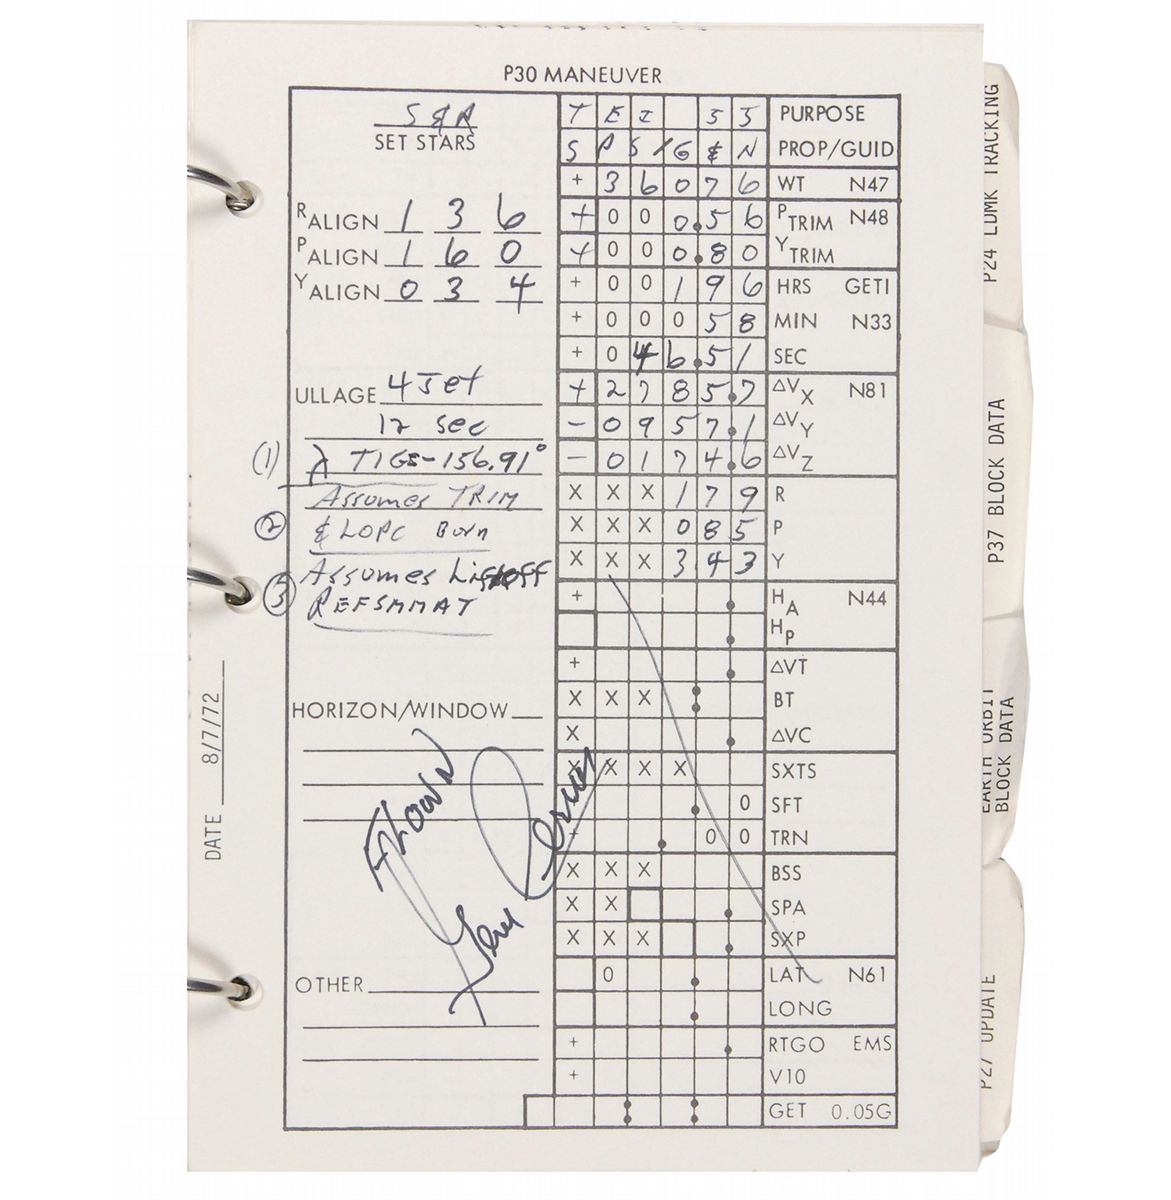 P30 MANEUVER
S & A
SET STARS
R ALIGN 1 3 6
P ALIGN 1 6 0
Y ALIGN 0 3 4
ULLAGE 4 Jet
12 sec
(1) λ TIG=-156.91°
Assumes TRIM
(2) & LOPC Burn
(3) Assumes Liftoff
REFSMMAT
HORIZON/WINDOW
FLOWN
Gene Cernan
OTHER
T E I 5 5 PURPOSE
S P S / G & N PROP/GUID
+ 3 6 0 7 6 WT N47
+ 0 0 0.5 6 P TRIM N48
+ 0 0 0.8 0 Y TRIM
+ 0 0 1 9 6 HRS GETI
+ 0 0 0 5 8 MIN N33
+ 0 4 6.5 1 SEC
+ 2 7 8 5.7 ΔVX N81
- 0 9 5 7.1 ΔVY
- 0 1 7 4.6 ΔVZ
X X X 1 7 9 R
X X X 0 8 5 P
X X X 3 4 3 Y
+ . HA N44
. HP
+ . ΔVT
X X X : BT
X . ΔVC
X X X X SXTS
+ . 0 SFT
+ . 0 0 TRN
X X X BSS
X X . SPA
X X X . SXP
0 . LAT N61
. LONG
+ . RTGO EMS
+ V10
: : GET 0.05G
DATE 8/7/72
P24 LDMK TRACKING
P37 BLOCK DATA
EARTH ORBIT
BLOCK DATA
P27 UPDATE